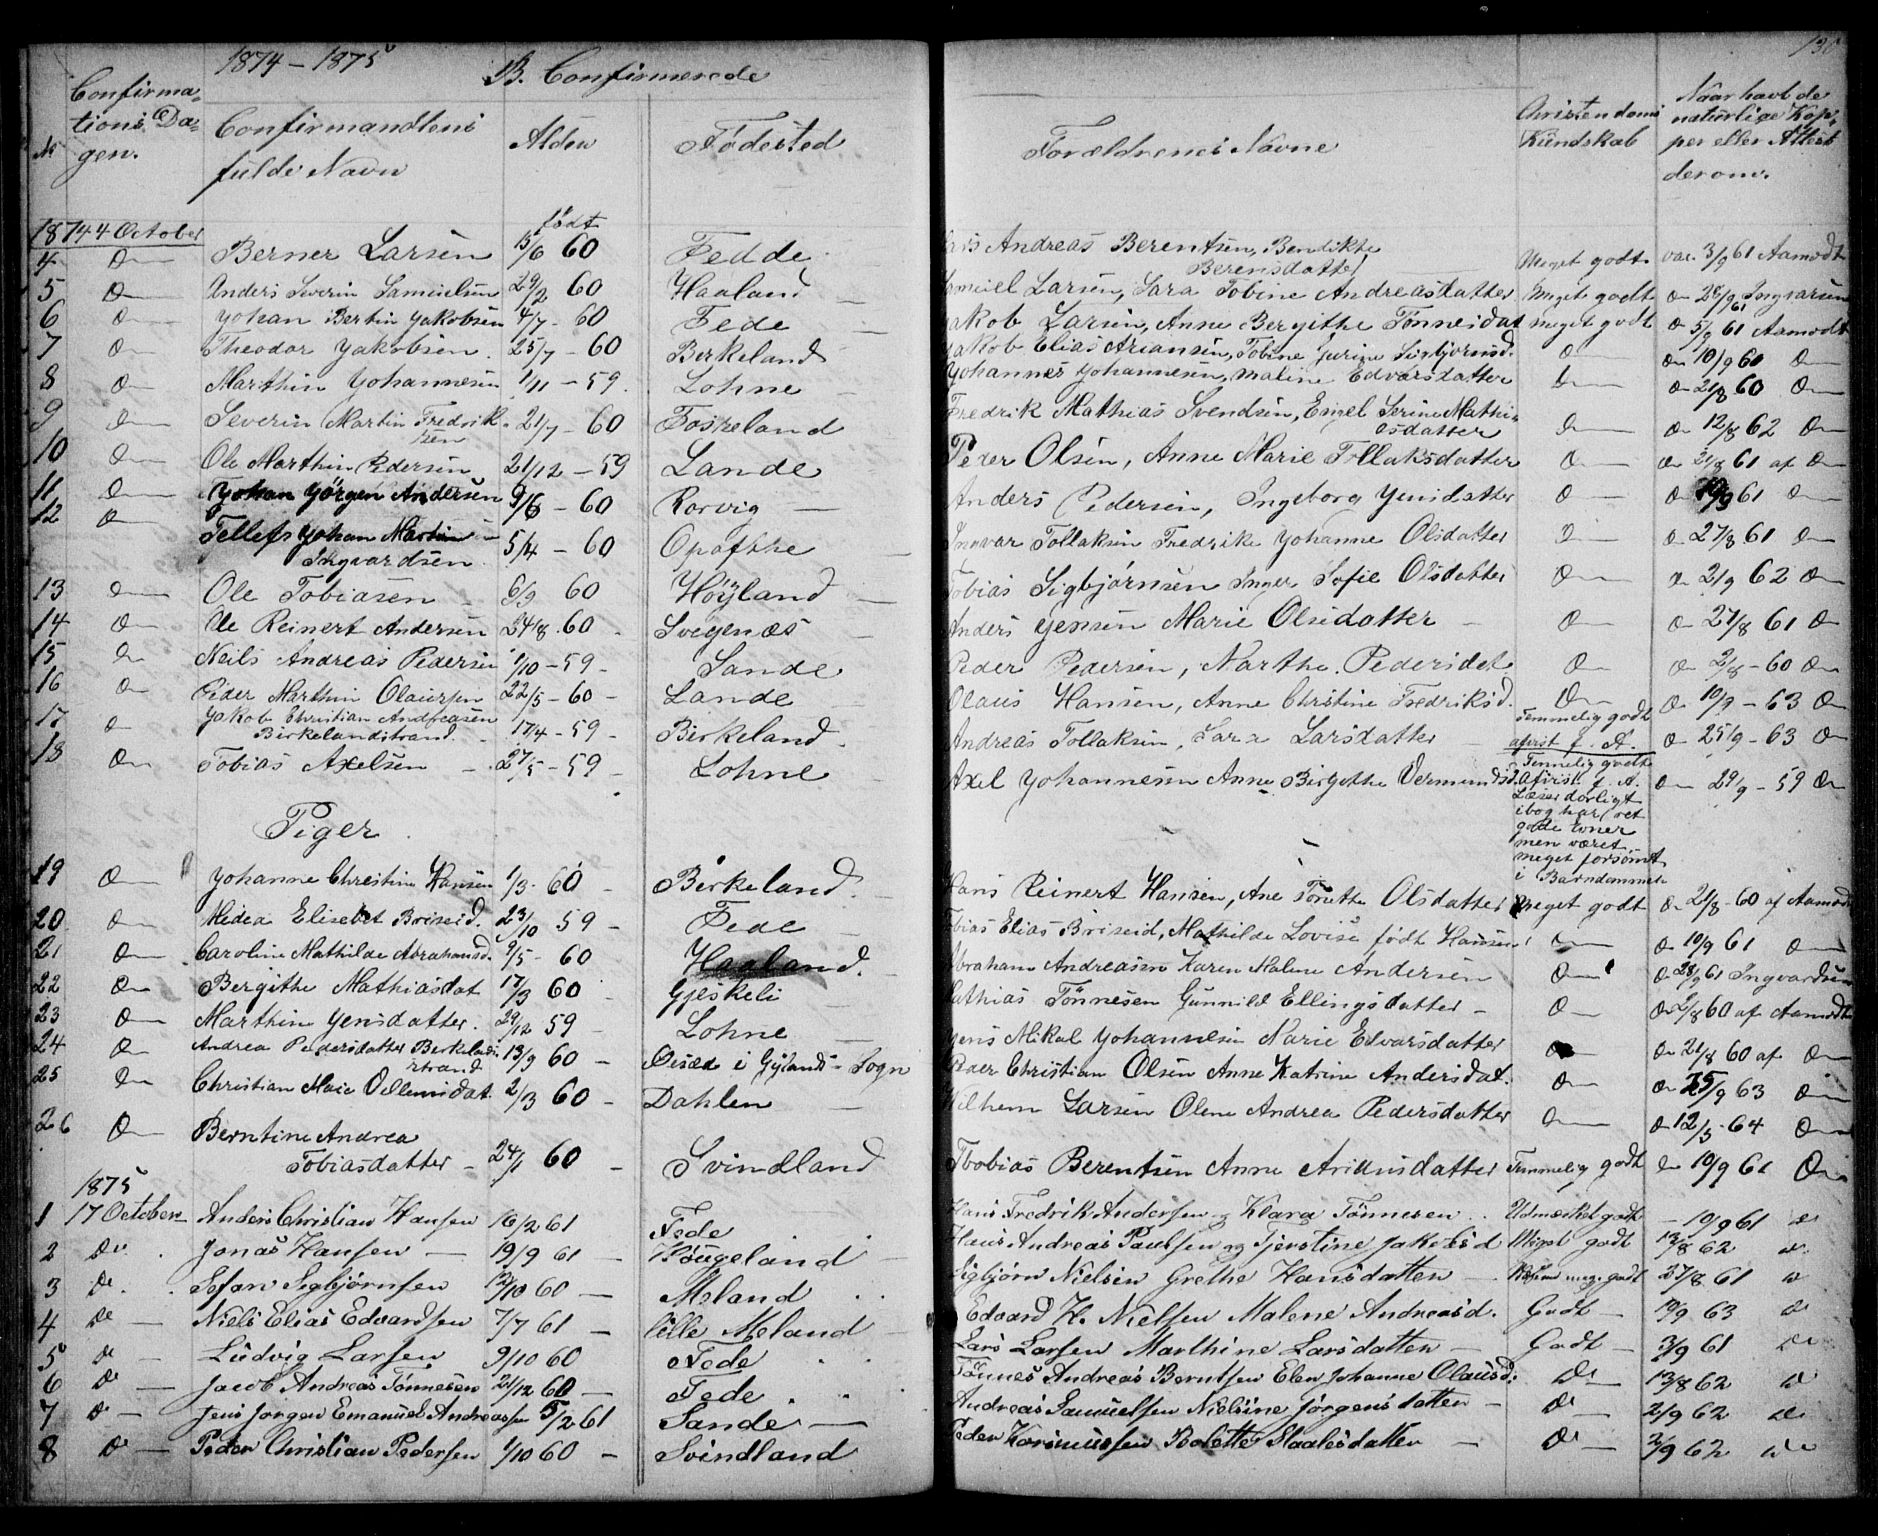 1874 – 1875 B. Confirmerede
130
No Confirmationis Dagen. Confirmandleni fulde Navn Alder Fødested Forældrenes Navne Christendoms Kundskab Naar havt de naturlige Kopper eller Attest derom.
1874 4 October født
4 Do Berner Larsen 15/6 60 Fedde Andreas Berentsen, Bendikte Berensdatter Meget godt vac. 3/9 61 Aamodt
5 Do Anders Severin Samuelsen 29/2 60 Haaland Samuel Larsen, Sara Tobine Andreasdatter Meget godt Do 28/9 61 Ingvarsen
6 Do Johan Bertin Jakobsen 4/7 - 60 Fede Jakob Larsen, Anne Bergithe Tønnesdat meget godt Do 5/9 61 Aamodt
7 Do Theodor Jakobsen 25/7 - 60 Birkeland Jakob Elias Ariansen, Tobine Jurine Sigbjørnsd. Do Do 10/9 60 Do
8 Do Marthin Johannesen 1/11 - 59. Lohne Johannes Johannesen, Maline Edvarsdatter Do Do 21/8 60 Do
9 Do Severin Martin Fredriksen 21/7 - 60 Foskeland Fredrik Mathias Svendsen, Engel Serine Mathiasdatter Do Do 12/8 62 Do
10 Do Ole Marthin Pedersen 21/12 - 59 Lande Peder Olsen, Anne Marie Tollaksdatter Do Do 21/8 61 af Do
11 Do Johan Jørgen Andersen 9/6 - 60 Rorvig Anders Pedersen, Ingeborg Jensdatter Do Do 19/9 61 Do
12 Do Tellefs Johan Martin Ingvardsen 5/4 - 60 Opofthe Ingvar Tollaksen Fredrike Johanne Olsdatter Do Do 27/8 61 Do
13 Do Ole Tobiasen 6/9 60 Høyland Tobias Sigbjørnsen Inger Sofie Olsdatter Do Do 2/9 62 Do
14 Do Ole Reinert Andersen 24/8. 60 Svegenæs Anders Jensen Marie Olsdatter Do Do 27/8 61 Do
15 Do Neils Andreas Pedersen 1/10 - 59 - Sande Peder Pedersen, Narthe Pedersdat Do Do 2/8 - 60 Do
16 Do Peder Marthin Olaussen 22/5 - 60 - Lande Olaus Hansen, Anne Christine Fredriksd. Do Do 10/9 - 63 Do
17 Do Jakob Christian Andreasen Birkelandstrand. 17/4 - 59 - Birkeland. Andreas Tollaksen, Sara Larsdatter Temmelig godt afvist f. A. Do 25/9 - 63 Do
18 Do Tobias Axelsen 27/5 - 59 Lohne Axel Johannesen Anne Birgethe Vermundsd. Temmelig godt Afvist f. A. Læser dorligt i bog har ret gode Evner men været meget forsømt i Barndommen Do 29/9 - 59 Do
Piger
19 Do Johanne Christine Hansen 1/3. 60 - Birkeland. Hans Reinert Hansen, Ane Tonette Olsdatter Meget godt Do 21/8 - 60 af Aamodt
20. Do Midea Elisebet Briseid. 23/10 59 - Fede Tobias Elias Briseid, Mathilde Lovise født Hansen Do Do 10/9 61 Do
21 Do Caroline Mathilde Abrahamsd. 9/5 - 60 Haaland. Abraham Andreasen Karen Malene Andersen Do Do 28/9 61 Ingvardsen
22 Do Bergithe Mathiasdat 17/3 60 - Gjeskeli Mathias Tønnesen Gunnild Ellingsdatter - Do Do 2/8 60 af Aamodt
23 Do Marthine Jensdatter. 29/12 59 - Lohne Jens Mikal Johannesen Narie Edvarsdatter Do Do 21/8 60 af Do
24 Do Andrea Pedersdatter Birkelandstrand 13/9 60 - Øisæd i Gylands - Sogn Peder Christian Olsen Anne Katrine Andersdat. Do Do 25/9 63 Do
25 Do Christian Marie Villemsdat. 2/3 60 - Dahlen Wilhem Larsen Olene Andrea Pedersdatter Do Do 12/5 - 64 Do
26 Do Berntine Andrea Tobiasdatter - 24/1 60 - Svindland Thobias Berentsen Anne Ariansdatter Temmelig godt Do 10/9 61 Do
1875
1 17 October Anders Christian Hansen 16/2 61 Fede Hans Fredrik Andersen og Klara Tønnesen Udmærket godt - 19/9 61 do
2 Do. Jonas Hansen - 19/9 61 - Hougeland Hans Andreas Paulsen og Tjerstine Jakobsd Meget godt 13/8 62 do
3 Do. Stefan Sigbjørnsen 12/10 60 - Meland Sigbjørn Nielsen Grethe Hansdatter - godt 27/8 61 do
4 Do - Niels Elias Edvardsen 7/7 61 - lille Meland Edvard H. Nielsen Malene Andreasd. Godt - 19/9 63 do
5 Do - Ludvig Larsen 9/10 60 Fede Lars Larsen Marthine Larsdatter - Godt - 3/9 61 do
6 Do - Jacob Andreas Tønnesen 21/12 60 - Fede Tønnes Andreas Berntsen Elen Johanne Olausd. Do 13/8 62 do
7 Do - Jens Jørgen Emanuel Andreassen 5/2 61 Sande - Andreas Samuelsen Nielsine Jørgensdatter - Do 2/9 62 do
8 Do - Peder Christian Pedersen 1/10 60 - Svindland Peder Rasmussen Bolette Staalesdatter - Do - 2/9 62 do